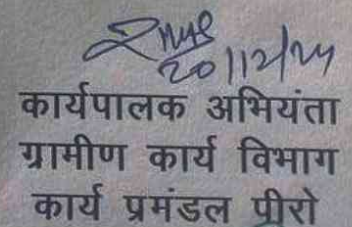 20/12/24
कार्यपालक अभियंता
ग्रामीण कार्य विभाग
कार्य प्रमंडल पीरो